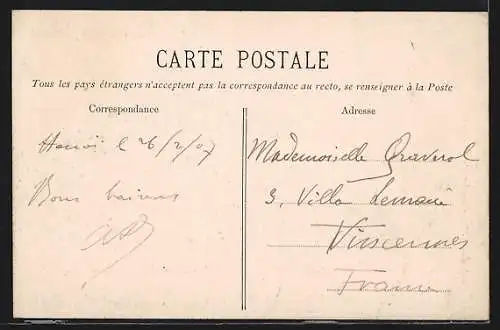 CARTE POSTALE
Tous les pays étrangers n'acceptent pas la correspondance au recto, se renseigner à la Poste
Correspondance
Hanoï le 26/2/07
Bons baisers
Adresse
Mademoiselle Graverol
3, Villa
Vincennes
France